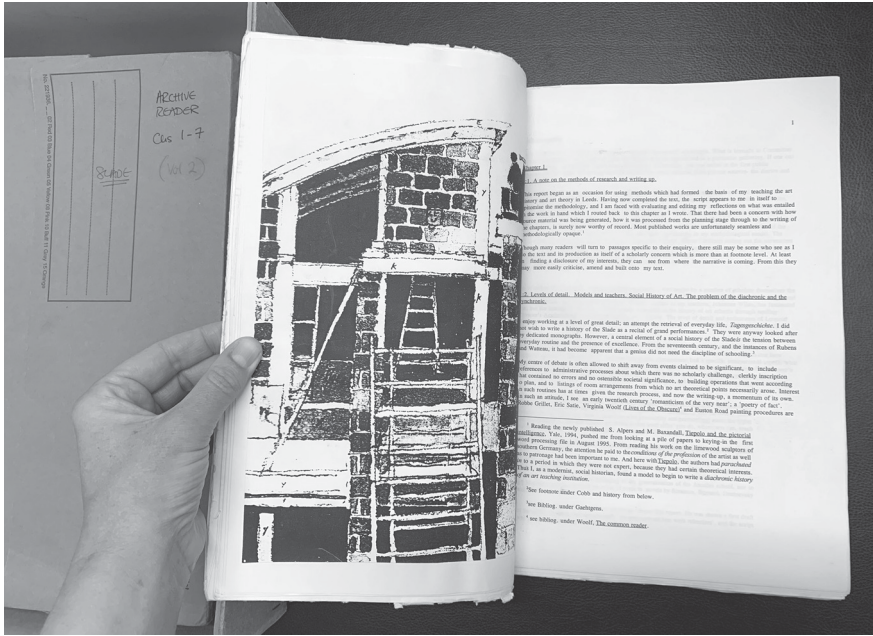 ARCHIVE
READER
Chs 1-7
(Vol 2)
SLADE
1
Chapter 1.
1. A note on the methods of research and writing up.
This report began as an occasion for using methods which had formed the basis of my teaching the art
history and art theory in Leeds. Having now completed the text, the script appears to me in itself to
the methodology, and I am faced with evaluating and editing my reflections on what was entailed
the work in hand which I routed back to this chapter as I wrote. That there had been a concern with how
source material was being generated, how it was processed from the planning stage through to the writing of
the chapters, is surely now worthy of record. Most published works are unfortunately seamless and
methodologically opaque.¹
Though many readers will turn to passages specific to their enquiry, there still may be some who see as I
the text and its production as itself of a scholarly concern which is more than at footnote level. At least
finding a disclosure of my interests, they can see from where the narrative is coming. From this they
may more easily criticise, amend and built onto my text.
2. Levels of detail. Models and teachers. Social History of Art. The problem of the diachronic and the
synchronic.
enjoy working at a level of great detail; an attempt the retrieval of everyday life, Tagesgeschichte. I did
not wish to write a history of the Slade as a recital of grand performances.² They were anyway looked after
dedicated monographs. However, a central element of a social history of the Slade is the tension between
everyday routine and the presence of excellence. From the seventeenth century, and the instances of Rubens
and Watteau, it had become apparent that a genius did not need the discipline of schooling.³
My centre of debate is often allowed to shift away from events claimed to be significant, to include
references to administrative processes about which there was no scholarly challenge, clerkly inscription
that contained no errors and no ostensible societal significance, to building operations that went according
to plan, and to listings of room arrangements from which no art theoretical points necessarily arose. Interest
such routines has at times given the research process, and now the writing-up, a momentum of its own.
such an attitude, I see an early twentieth century 'romanticism of the very near'; a 'poetry of fact'.
Robbe Grillet, Eric Satie, Virginia Woolf (Lives of the Obscure)⁴ and Euston Road painting procedures are
¹ Reading the newly published S. Alpers and M. Baxandall, Tiepolo and the pictorial
intelligence, Yale, 1994, pushed me from looking at a pile of papers to keying-in the first
word processing file in August 1995. From reading his work on the limewood sculptors of
southern Germany, the attention he paid to the conditions of the profession of the artist as well
as to patronage had been important to me. And here with Tiepolo, the authors had parachuted
in to a period in which they were not expert, because they had certain theoretical interests.
Thus I, as a modernist, social historian, found a model to begin to write a diachronic history
of an art teaching institution.
²See footnote under Cobb and history from below.
³see Bibliog. under Gaehtgens.
⁴ see bibliog. under Woolf, The common reader.